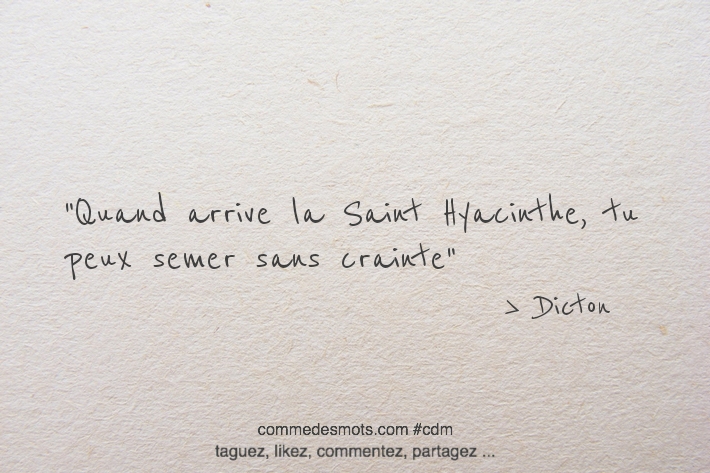 "Quand arrive la Saint Hyacinthe, tu
peux semer sans crainte"
> Dicton
commedesmots.com #cdm
taguez, likez, commentez, partagez ...